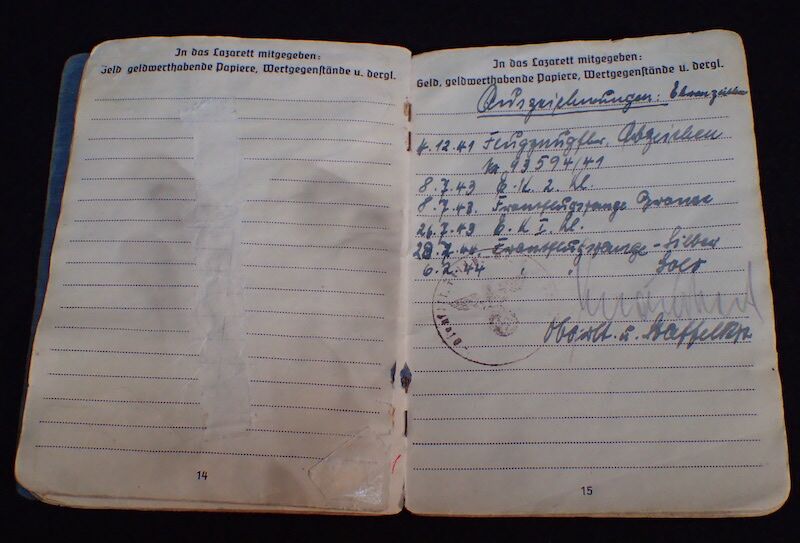 In das Lazarett mitgegeben:
Geld, geldwerthabende Papiere, Wertgegenstände u. dergl.
14
In das Lazarett mitgegeben:
Geld, geldwerthabende Papiere, Wertgegenstände u. dergl.
Auszeichnungen: Ehrenzeichen
4.12.41 Flugzeugfhr. Abzeichen
Nr. 93594/41
8.7.43 E.K. 2. Kl.
8.7.43 Frontflugspange Bronze
26.7.43 E.K I. Kl.
Frontflugspange - Silber
6.2.44 " " Gold
Oberlt. u. Staffelkp.
15